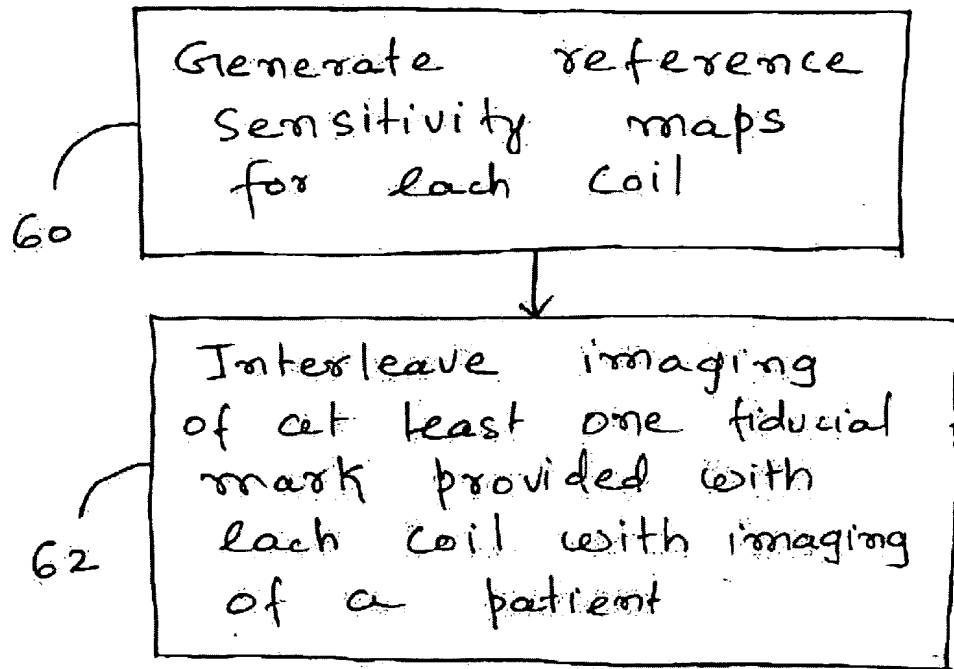 Generate reference
sensitivity maps
for each coil
60
Interleave imaging
of at least one fiducial
mark provided with
each coil with imaging
of a patient
62